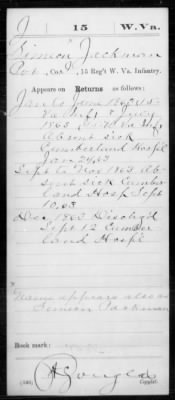 J 15 W. Va.
Simeon Jackman
Pvt., Co. , 15 Reg't W. Va. Infantry.
Appears on Returns as follows:
Jan to June 1863
1863
Absent sick
Cumberland Hospl
Jan 24, 63
Sept to Nov 1863 Ab-
sent sick Cumber-
land Hosp Sept
10, 63
Dec 1863 Disch'd
Sept 12 Cumber
land Hospl
Name appears also as
Simeon Packman
Book mark:
(546) Copyist.